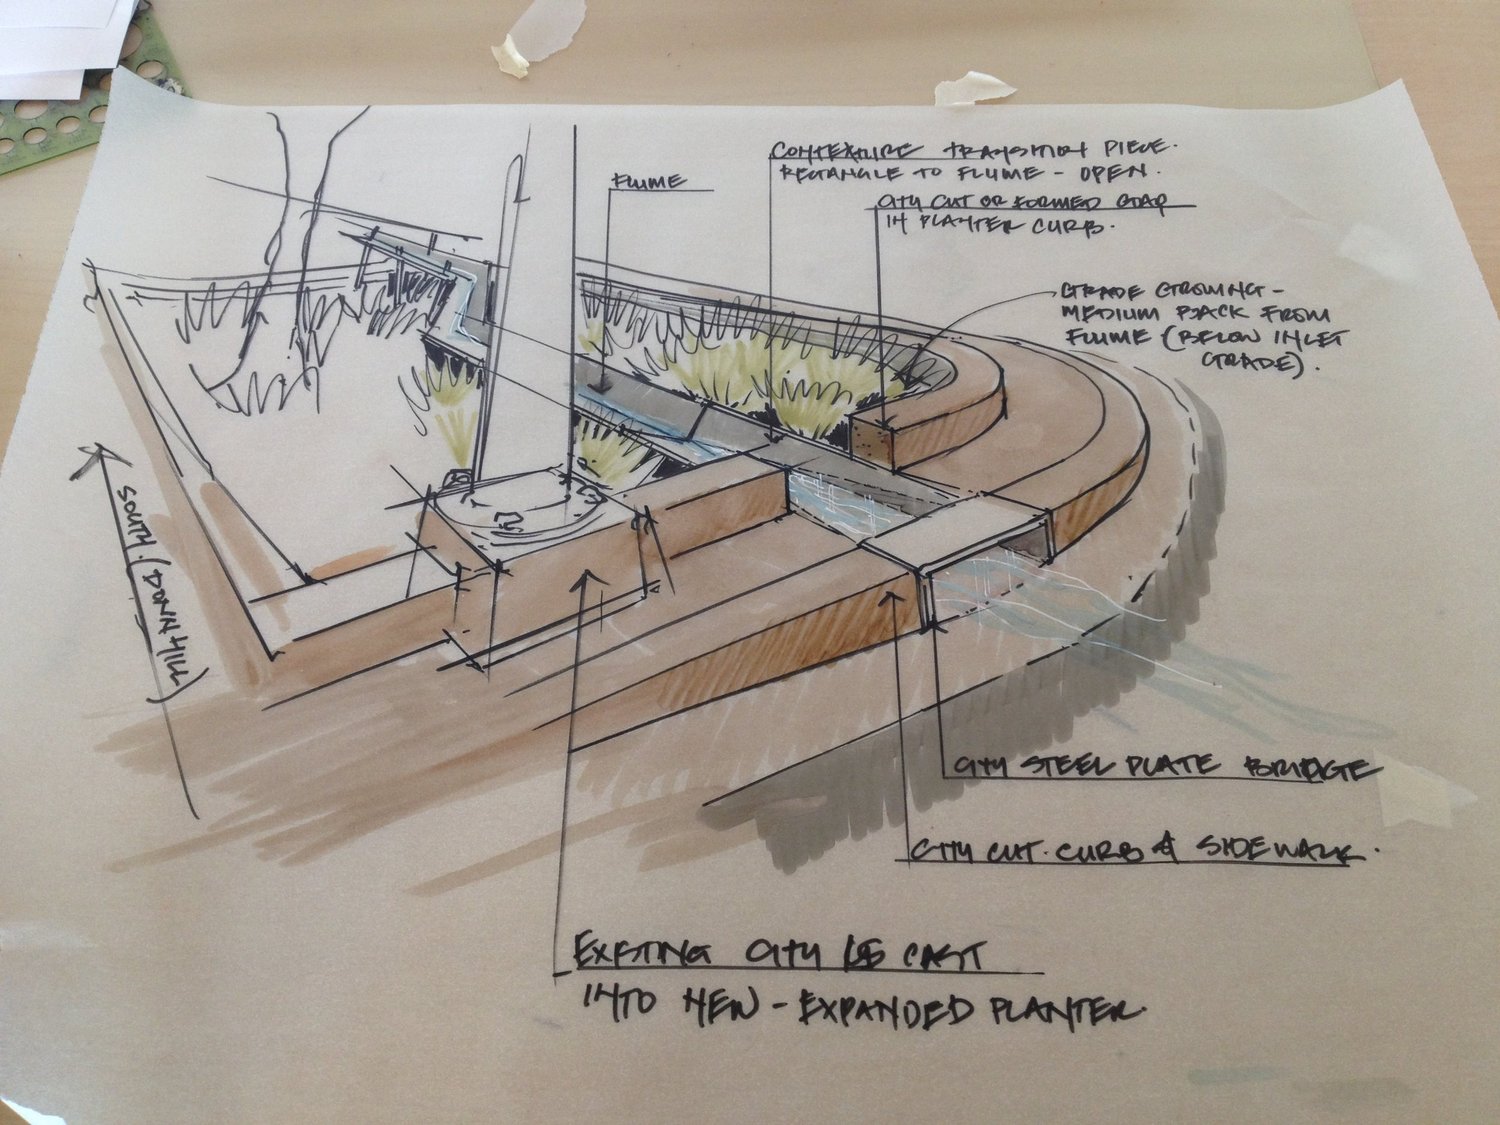 FLUME
CONTEXTURE TRANSITION PIECE.
RECTANGLE TO FLUME - OPEN.
CITY CUT OR FORMED GAP
IN PLANTER CURB.
GRADE GROWING -
MEDIUM BACK FROM
FLUME (BELOW INLET
GRADE).
SOUTH. (DOWNHILL)
CITY STEEL PLATE BRIDGE
CITY CUT. CURB & SIDEWALK.
EXISTING CITY CAST
INTO NEW - EXPANDED PLANTER.